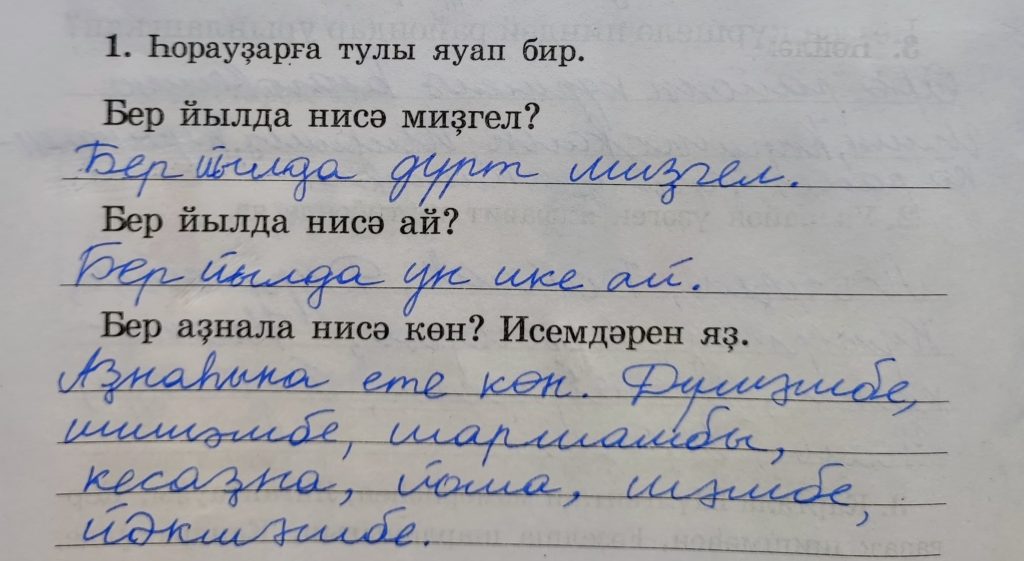 1. Һорауҙарға тулы яуап бир.
Бер йылда нисә миҙгел?
Бер йылда дурт миҙгел.
Бер йылда нисә ай?
Бер йылда ун ике ай.
Бер аҙнала нисә көн? Исемдәрен яҙ.
Аҙнаһына ете көн. Дүшәмбе,
шишәмбе, шаршамбы,
кесаҙна, йома, шәмбе,
йәкшәмбе.